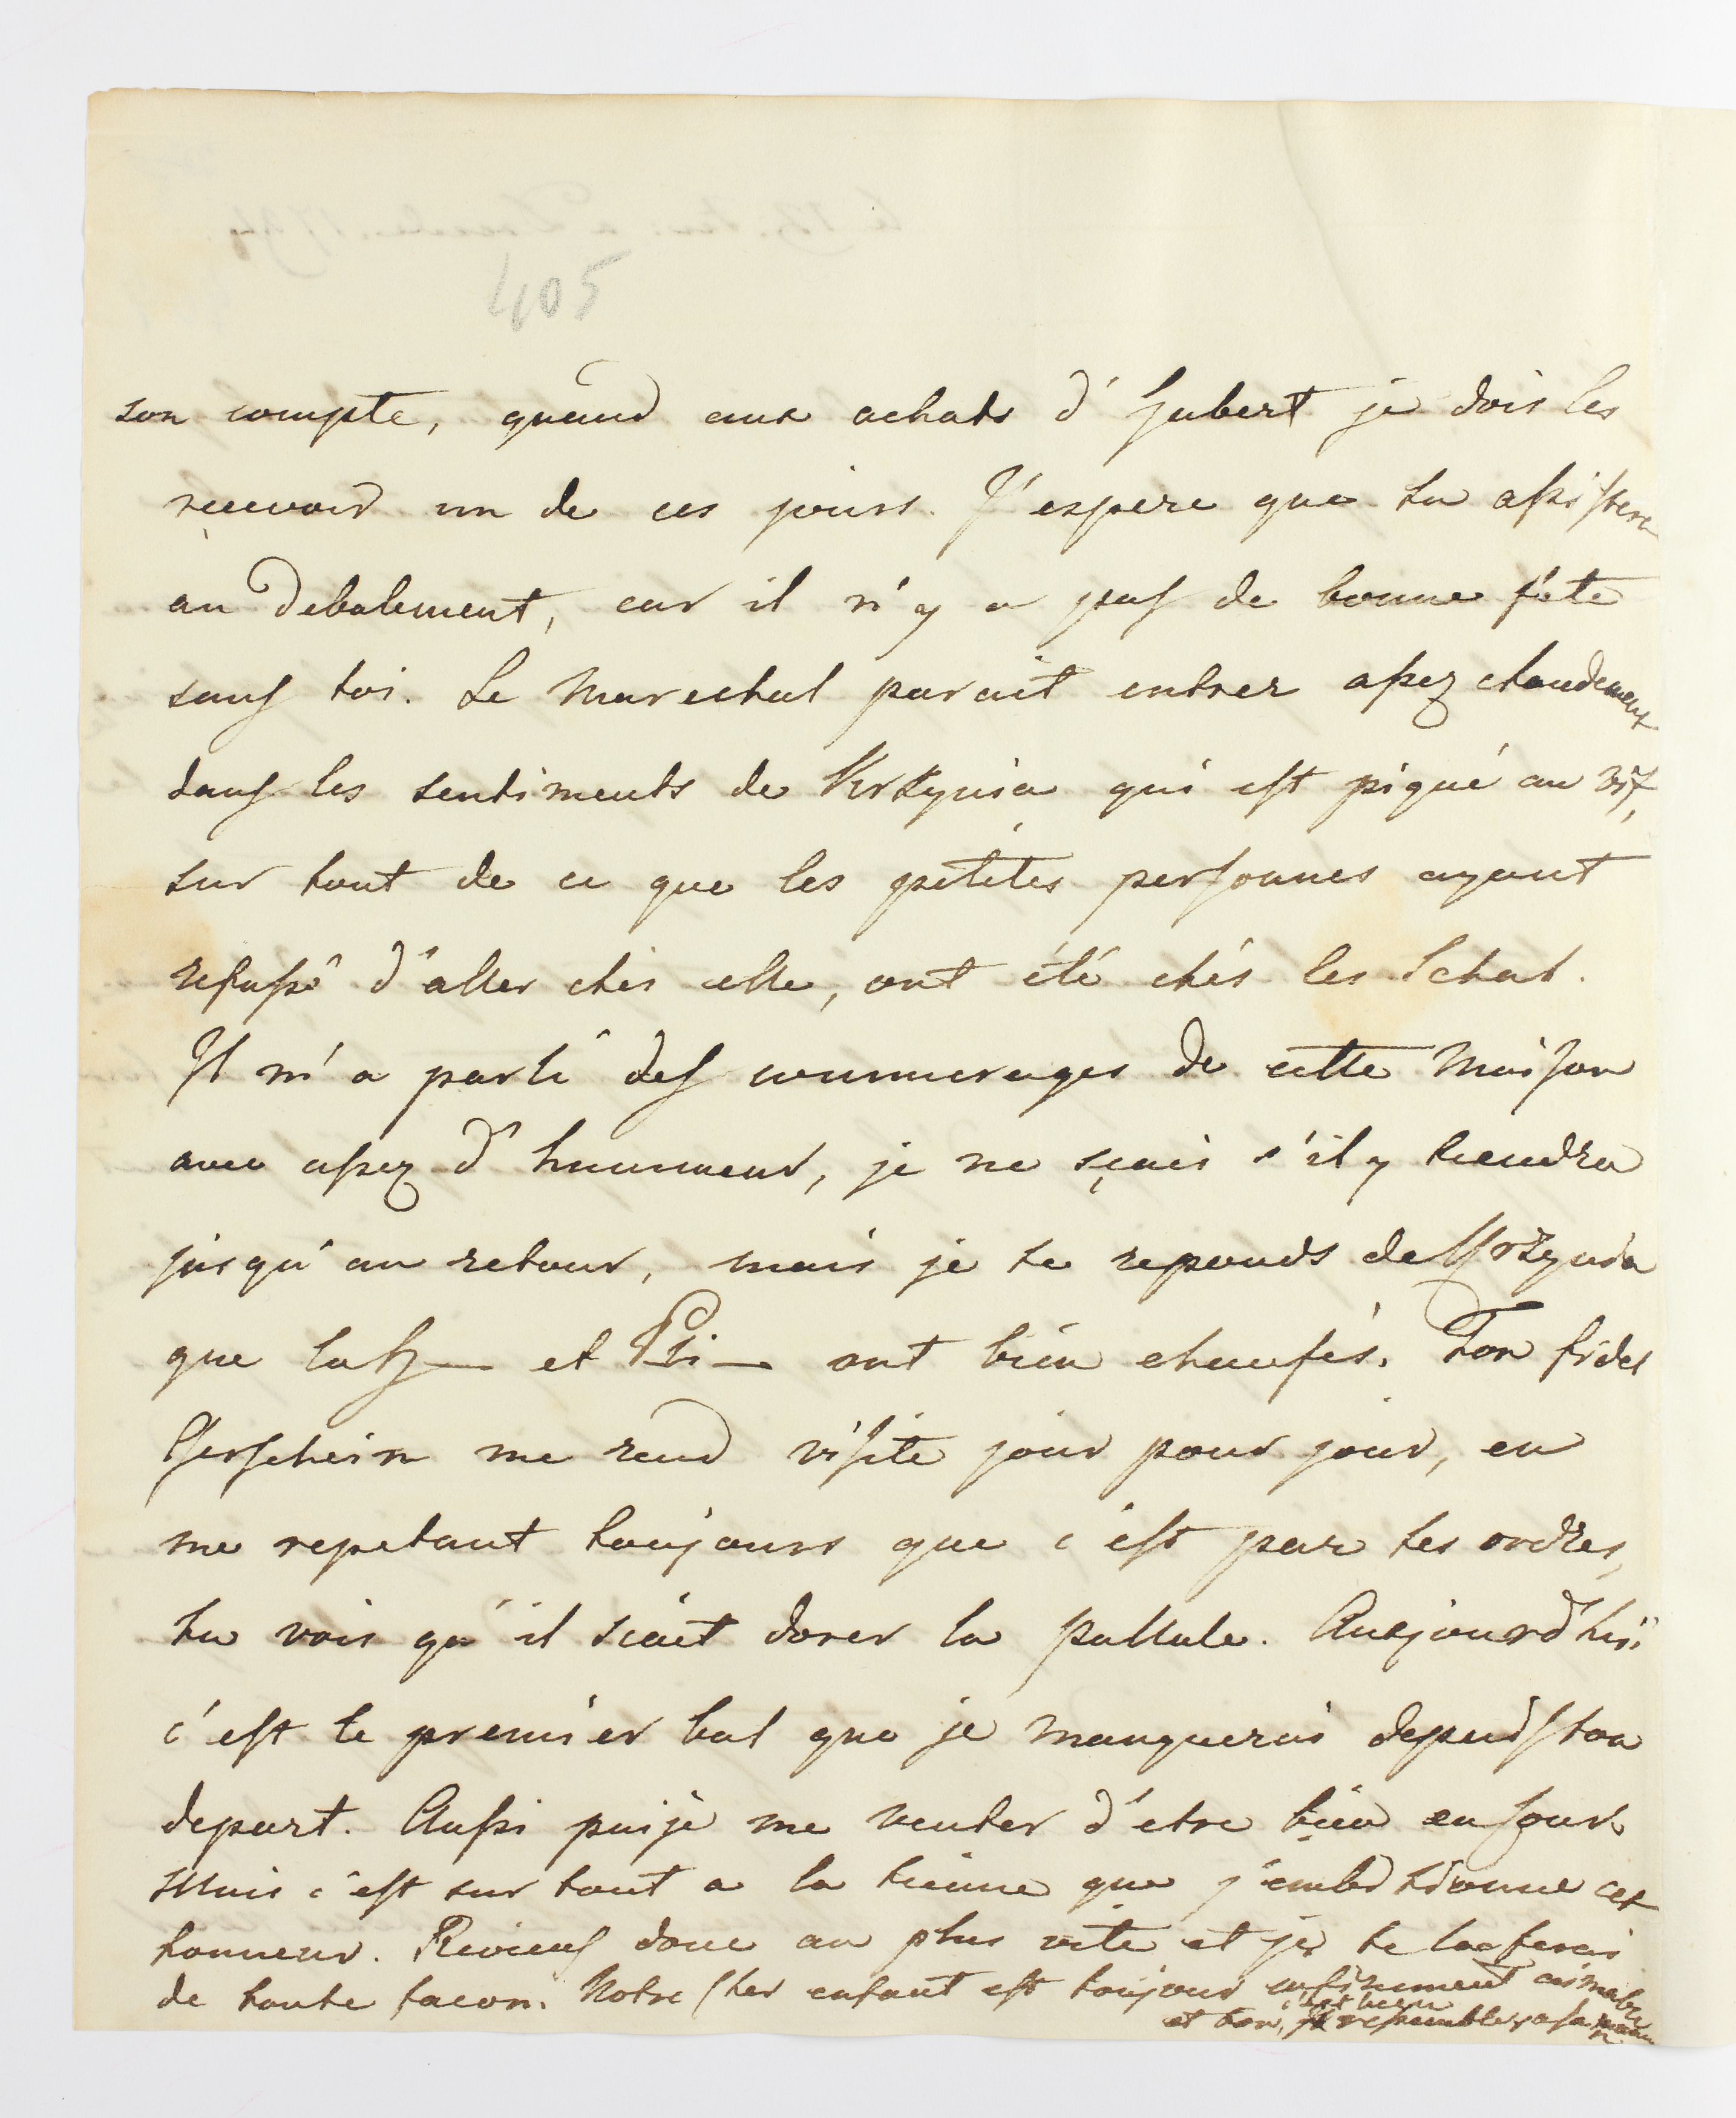 405
son compte, quand aux achats d'Hubert je dois les
recevoir un de ces jours. J'espere que tu assistera
au debalement, car il n'y a pas de bonne fête
sans toi. Le Marechal parait entrer assez chaudement
dans les sentiments de qui est piqué au vif,
sur tout de ce que les petites personnes ayant
refussé d'aller chés elle, ont été chés les Schat.
Il m'a parlé des commerages de cette Maison
avec assez d'hummeur, je ne sçais s'il y tiendra
jusqu'au retour, mais je te reponds de
que et ont bien chaufés. Ton fidel
me rend visite jour pour jour, en
me repetant toujours que c'est par tes ordres,
tu vois qu'il sçait dorer la pullule. Aujourd'hui
c'est le premier bal que je manquerai depuis ton
depart. Aussi puije me venter d'etre bien en
Mais c'est sur tout a la tienne que cet
honneur. Reviens donc au plus vite et je te la ferai
de toute facon. Notre cher enfant est toujour infiniment aimable
et bon, ressembler a sa maman